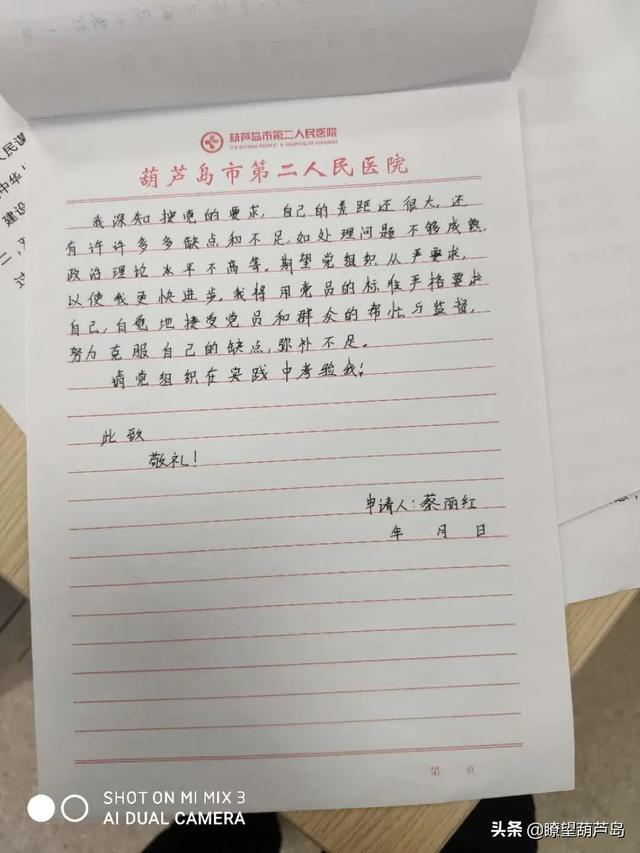 葫芦岛市第二人民医院
葫芦岛市第二人民医院
我深知按党的要求,自己的差距还很大,还
有许许多多缺点和不足,如处理问题不够成熟,
政治理论水平不高等。期望党组织从严要求,
以使我更快进步。我将用党员的标准严格要求
自己,自觉地接受党员和群众的帮忙与监督,
努力克服自己的缺点,弥补不足。
请党组织在实践中考验我!
此致
敬礼!
申请人:蔡丽红
年 月 日
第 页
人民谋
中华
建设
二,
SHOT ON MI MIX 3
AI DUAL CAMERA
头条 @瞭望葫芦岛